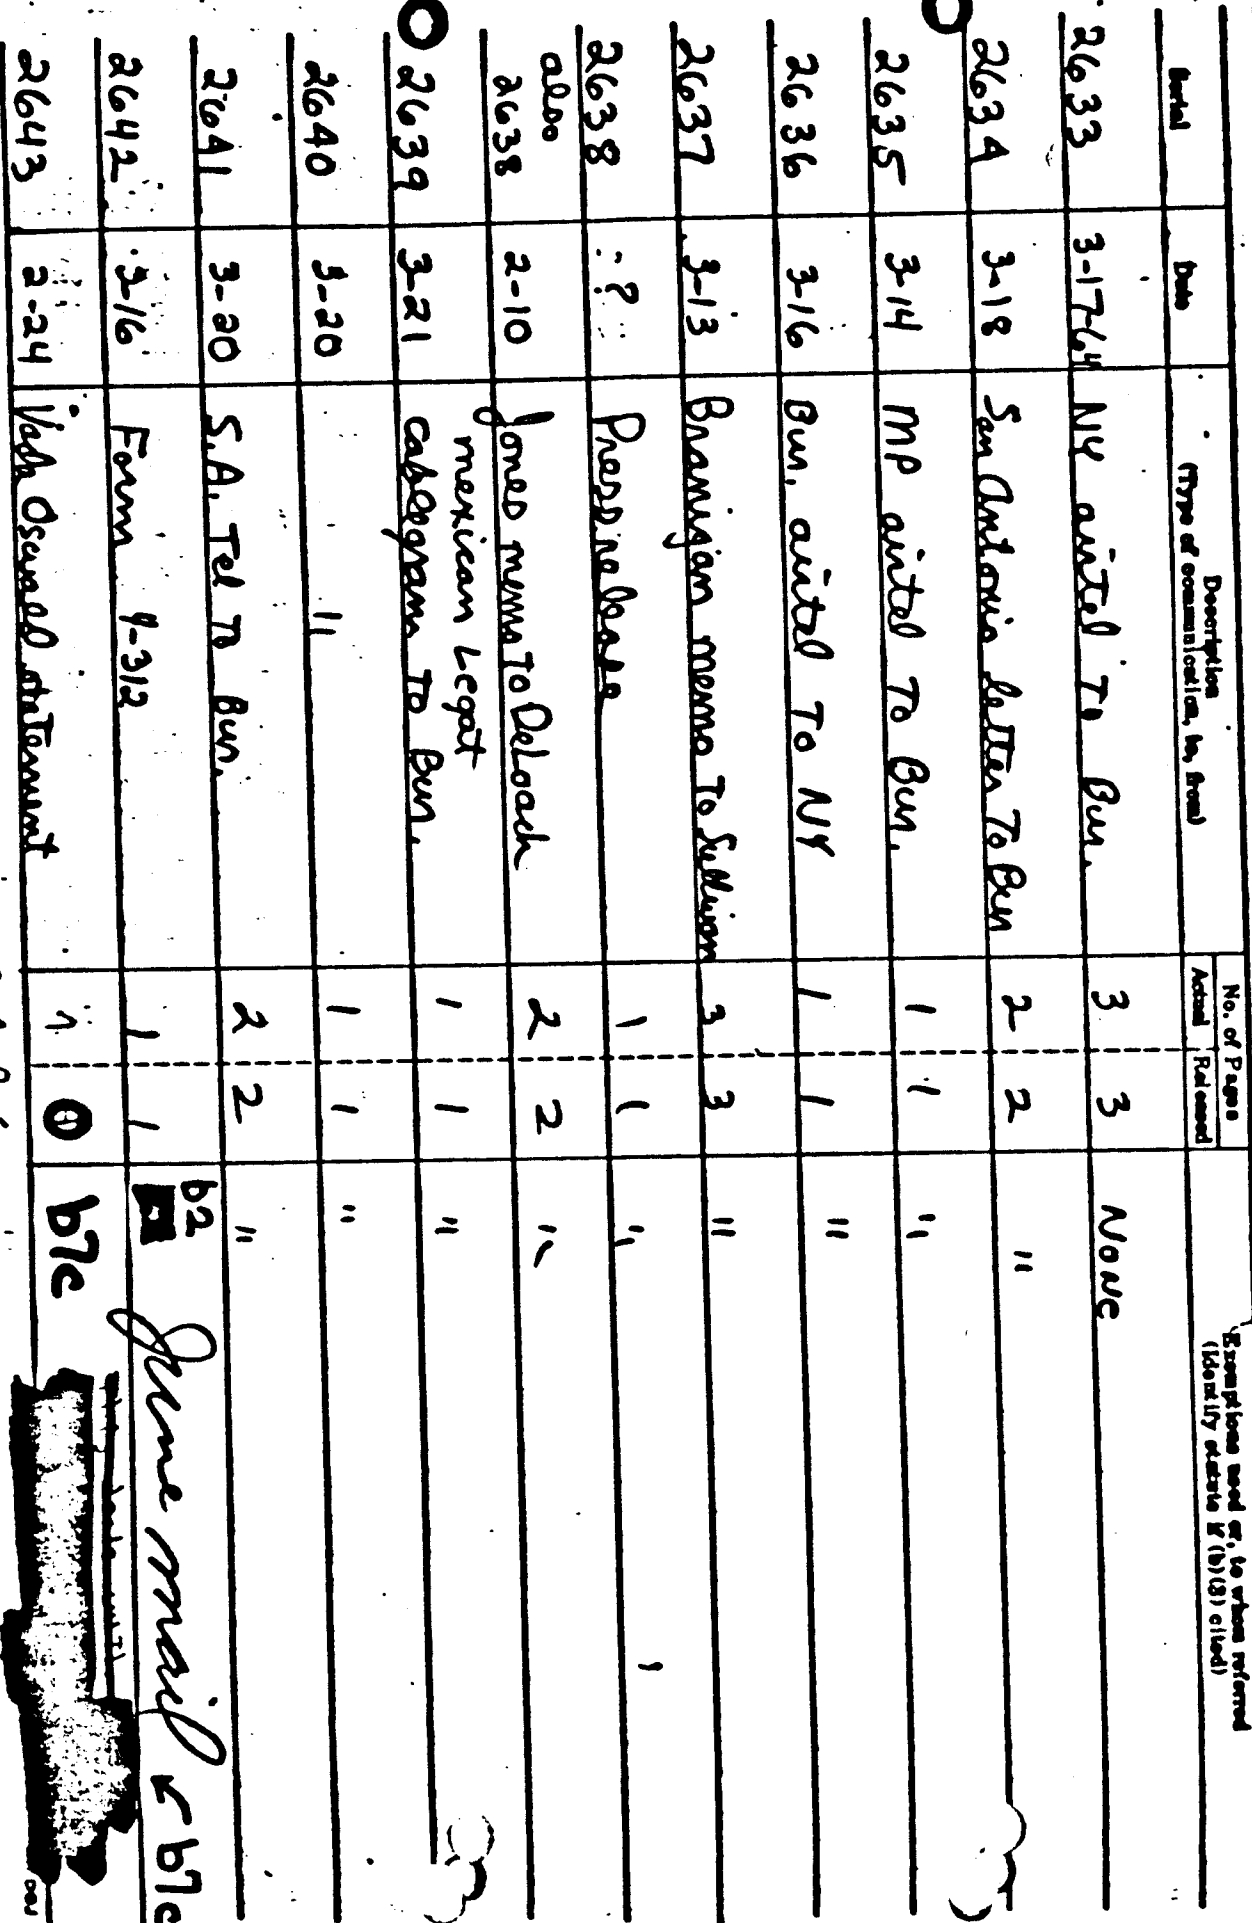 Serial Date Description (Type of communication, to, from) No. of Pages Actual Released Exemptions used or, to whom referred (Identify statute if (b)(3) cited)
2633 3-17-64 NY airtel To Bur. 3 3 NONE
2634 3-18 San Antonio letter To Bur 2 2 "
2635 3-14 MP airtel To Bur. 1 1 "
2636 3-16 Bur. airtel To NY 1 1 "
2637 3-13 Branigan memo To Sullivan 3 3 "
2638 ? Press release 1 1 "
also
2638 2-10 Jones memo To DeLoach 2 2 "
mexican Legat
2639 3-21 cablegram To Bur. 1 1 "
2640 3-20 " 1 1 "
2641 3-20 S.A. Tel To Bur. 2 2 "
2642 3-16 Form 9-312 1 1 b2 June mail b7c
2643 2-24 Oswald statement 0 b7c